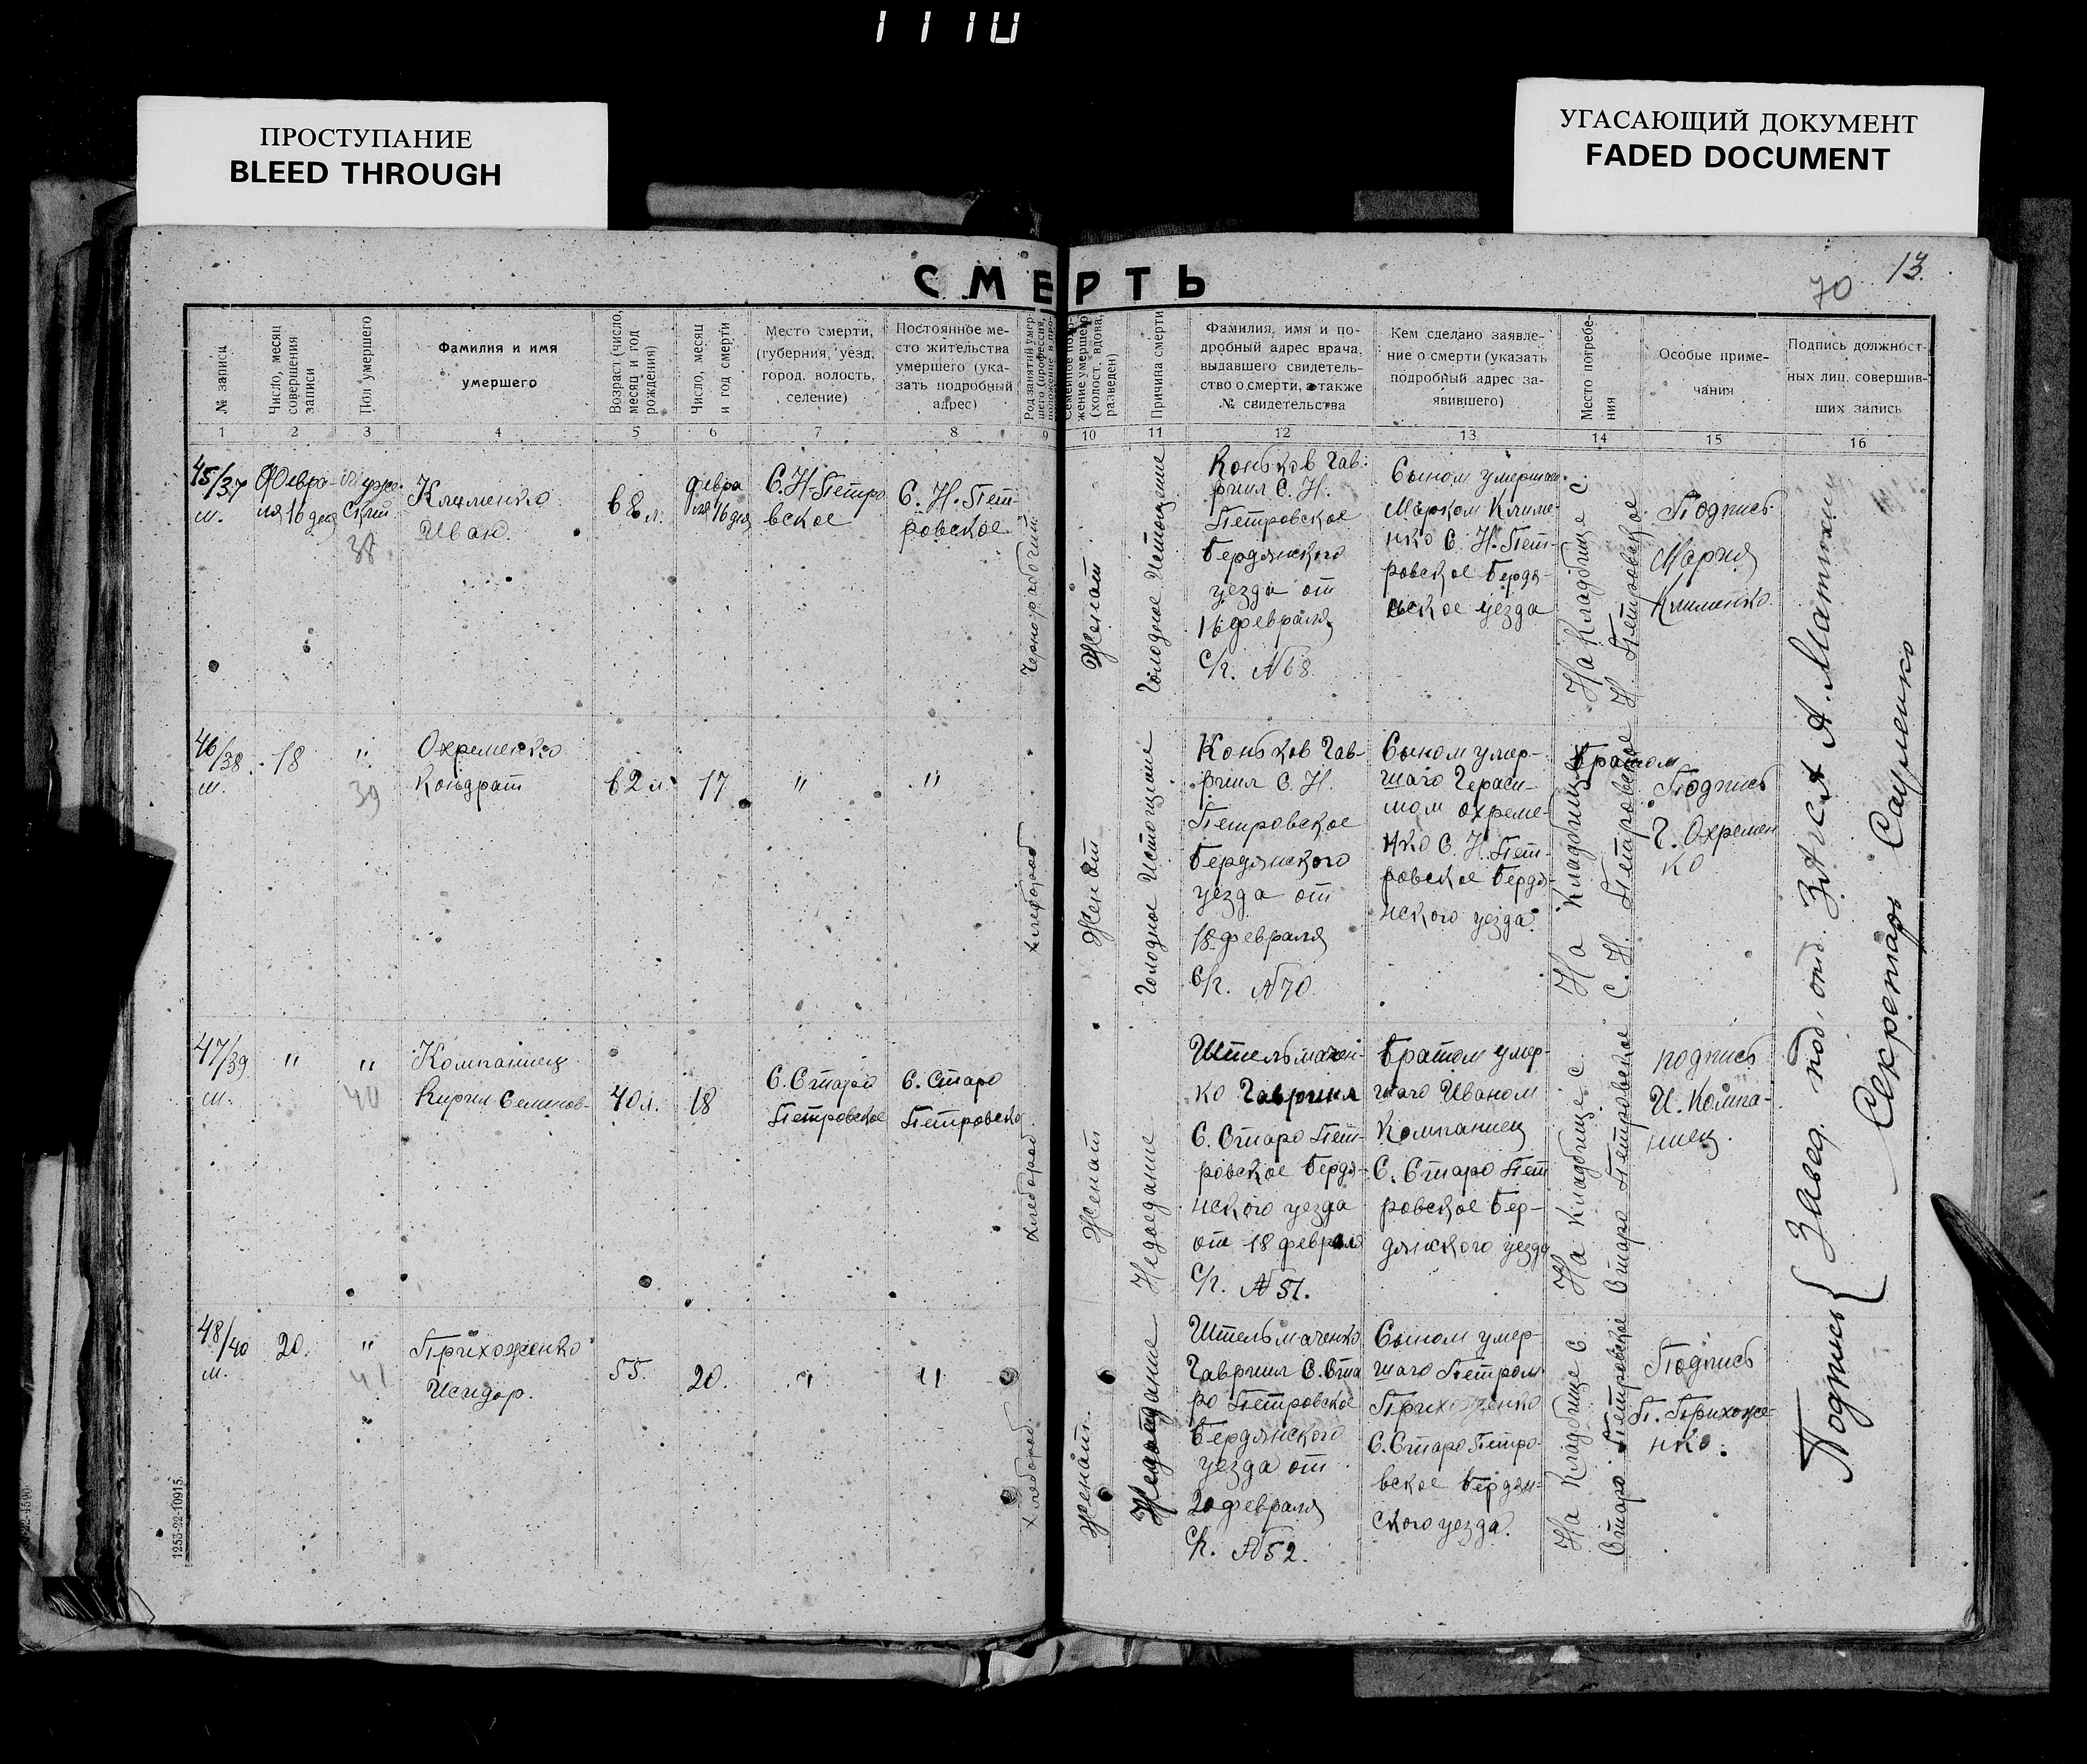 1110
ПРОСТУПАНИЕ
BLEED THROUGH
УГАСАЮЩИЙ ДОКУМЕНТ
FADED DOCUMENT
13.
70
СМЕРТЬ
№ записи
Число, месяц
совершения
записи
Пол умершего
Фамилия и имя
умершего
Возраст (число,
месяц и год
рождения)
Число, месяц
и год смерти
Место смерти,
(губерния, уезд,
город, волость,
селение)
Постоянное ме-
сто жительства
умершего (ука-
зать подробный
адрес)
Род занятий умер-
шего (профессия,
положение в про-
Семейное поло-
жение умершего
(холост, вдова,
разведен)
Причина смерти
Фамилия, имя и по-
дробный адрес врача,
выдавшего свидетель-
ство о смерти, а также
№ свидетельства
Кем сделано заявле-
ние о смерти (указать
подробный адрес за-
явившего)
Место погребе-
ния
Особые приме-
чания
Подпись должност-
ных лиц, совершив-
ших запись
1 2 3 4 5 6 7 8 9 10 11 12 13 14 15 16
45/37
м.
Февра-
ля 16 дня
Мужс.
ский
38
Клименко
Иван.
68 л.
Февра
ля 16 дня
С. Н-Петро
вское
С. Н. Пет-
ровское
Чернорабочий
Женат
Голодное Истощение
Коньков Гав-
риил С. Н.
Петровское
Бердянского
уезда от
16 февраля
С/г. №68.
Сыном умерш
Марком Климе-
нко С. Н. Пет-
ровское Бердя-
нское уезда
На Кладбище С.
Н. Петровское
Подпись
Марка
Клименко.
46/38
м.
18
"
39
Охременко
Кондрат
62 л.
17
"
"
хлебороб
Женат
Голодное Истощение
Коньков Гав-
риил С. Н.
Петровское
Бердянского
уезда от
18 февраля
С/г. №70.
Сыном умер-
шаго Гераси-
мом Охреме-
нко С. Н. Пет-
ровское Бердя-
нского уезда.
Братом
На Кладбище
С. Н. Петровское
Подпись
Г. Охремен
ко
47/39
м.
"
"
40
Компаниец
Кирил Семенов-
40 л.
18
С. Старо
Петровское
С. Старо
Петровско
хлебороб
Женат
Недоедание
Штельмачен-
ко Гавриил
С. Старо Пет-
ровское Бердя-
нского уезда
от 18 февраля
С/г. №51.
Братом умер-
шаго Иваном
Компаниец
С. Старо Пет
ровское Бер-
дянского уезда
На Кладбище С.
Старо Петровское
подпись
И. Компа-
ниец.
48/40
м.
20.
"
41
Приходженко
Исидор.
55.
20.
"
"
хлебороб
Женат.
Недоедание
Штельмаченко
Гавриил С. Ста
ро Петровское
Бердянского
уезда от
20 февраля
С/г. №52.
Сыном умер-
шаго Петром
Приходженко
С. Старо Петро-
вское Бердян-
ского уезда.
На Кладбище С.
Старо Петровское
Подпись
П. Прихоже-
нко.
Подпись {
Завед. под. отд. ЗАГСА А.
Секретарь Сауленко
1253-22-10915.